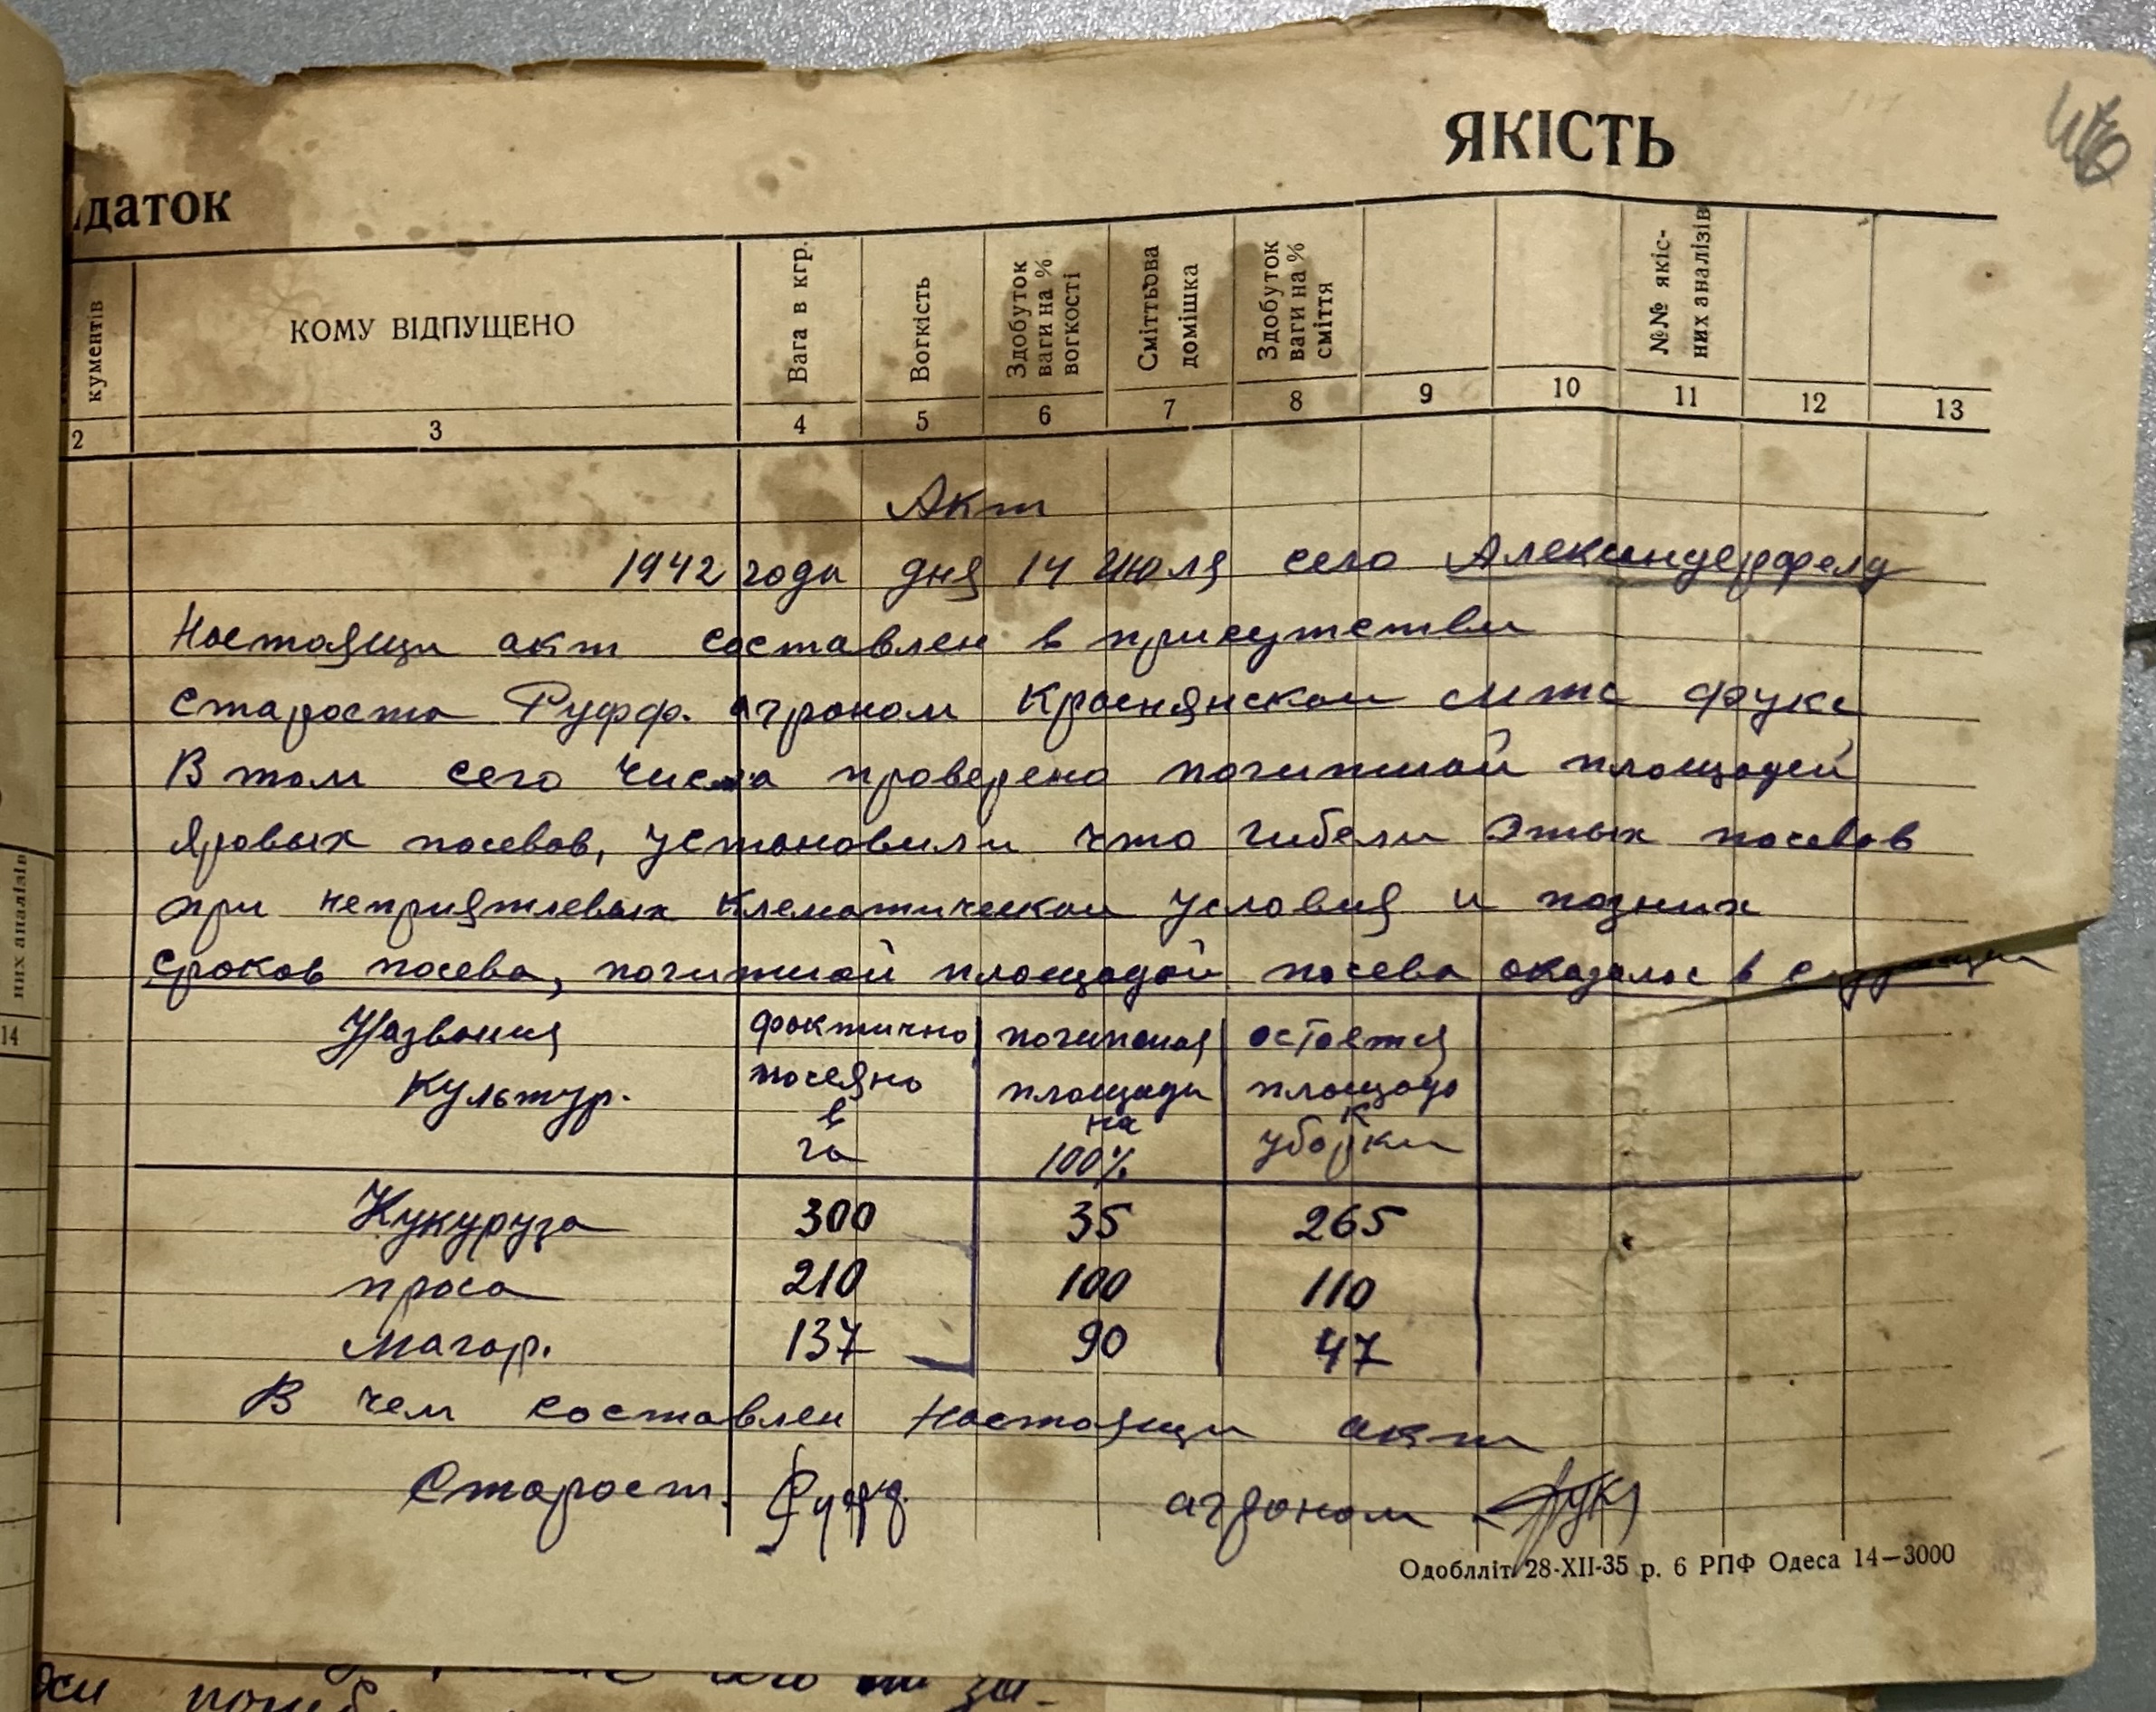 ЯКІСТЬ
даток
кументів
КОМУ ВІДПУЩЕНО
Вага в кгр.
Вогкість
Здобуток ваги на % вогкості
Сміттьова домішка
Здобуток ваги на % сміття
№№ якіс-
них аналізів
2 3 4 5 6 7 8 9 10 11 12 13
Акт
1942 года дня 14 июля село Александерфелд
Настоящи акт составлен в присутстви
староста Руфф. агроном Краснянскои мтс Фукс
В том сего числа проверено погипшой площадей
яровых посевов, установили что гибели этых посевов
при неприятлевых клематическои условия и позних
сроков посева, погипшой площадой посева оказалос в
Названия культур.
фактично посеяно в га
погипшая площади на 100%
остоется площадь к уборки
Кукуруза 300 35 265
проса 210 100 110
Магар. 137 90 47
В чем составлен Настоящи акт
Старост. Руфф. агроном Фукс
Одоблліт 28-XII-35 р. 6 РПФ Одеса 14—3000
них аналізів
14